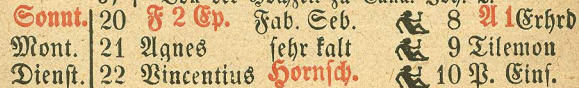 Sonnt. 20 F 2 Ep. Fab. Seb. 8 A 1 Erhrd
Mont. 21 Agnes sehr kalt 9 Tilemon
Dienst. 22 Vincentius Hornsch. 10 P. Eins.